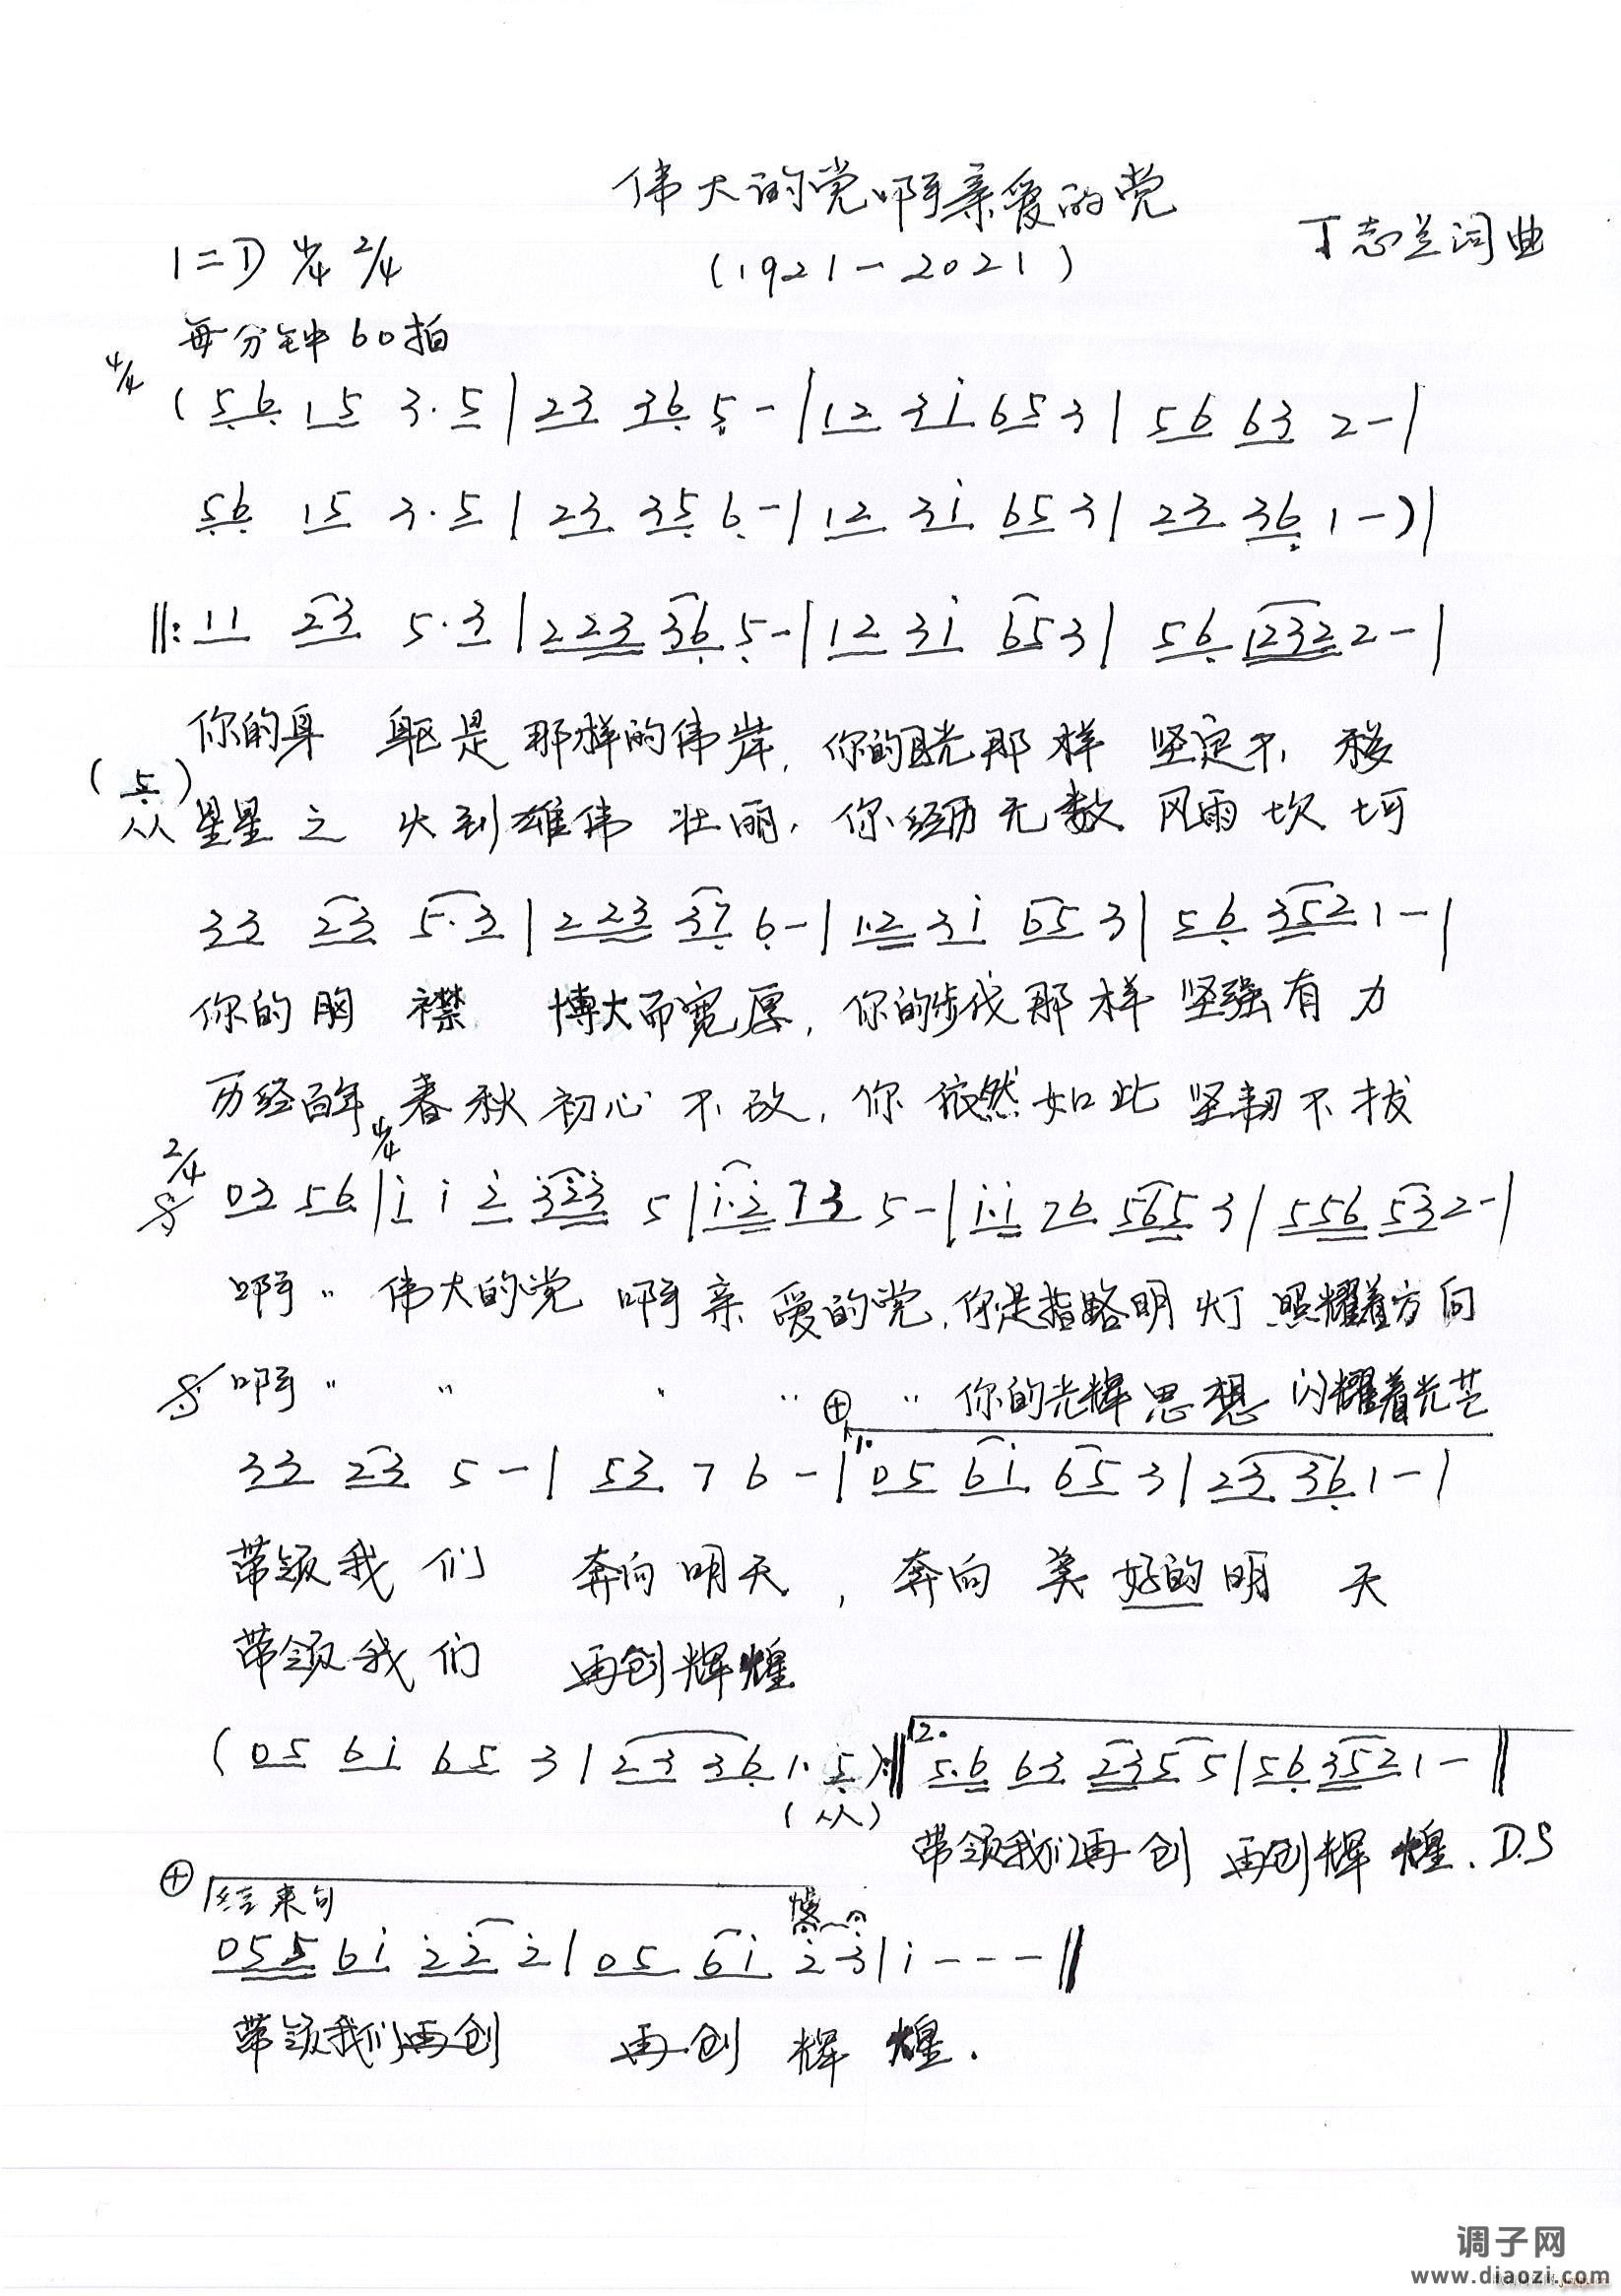 伟大的党啊亲爱的党
丁志兰词曲
1=D 4/4 2/4
(1921-2021)
每分钟60拍
4/4
(56 15 3·5|23 36 5-|12 3i 653|56 63 2-|
56 15 3·5|23 35 6-|12 3i 653|23 36 1-)|
‖:11 23 5·3|223 36 5-|12 3i 653|56 1232 2-|
你的身 躯是那样的伟岸,你的目光那样 坚定不 移
(5)
从 星星之 火到雄伟 壮丽,你经历无数 风雨坎坷
33 23 5·3|223 37 6-|1·2 3i 653|56 352 1-|
你的胸 襟 博大而宽厚,你的步伐那样 坚强有 力
历经百年 春秋初心 不改,你依然如此 坚韧不拔
2/4 4/4
03 56|i i 2 323 5|i·2 73 5-|i·i 76 565 3|556 53 2-|
啊〃 伟大的党 啊亲 爱的党,你是指路明 灯 照耀着方向
啊〃 〃 〃 〃 ⊕ 〃 你的光辉思想 闪耀着光芒
33 23 5-|53 7 6-|1. 05 6i 65 3|23 36 1-|
带领我 们 奔向明天, 奔向 美 好的明 天
带领我们 再创辉煌
(05 6i 65 3|23 36 1·5):‖2. 5·6 63 235 5|56 352 1-‖
(从)
带领我们再创 再创辉煌. D.S
⊕ 结束句
慢
055 6i 22 2|05 6i 2 3|i---‖
带领我们再创 再创 辉 煌.
调子网
www.diaozi.com